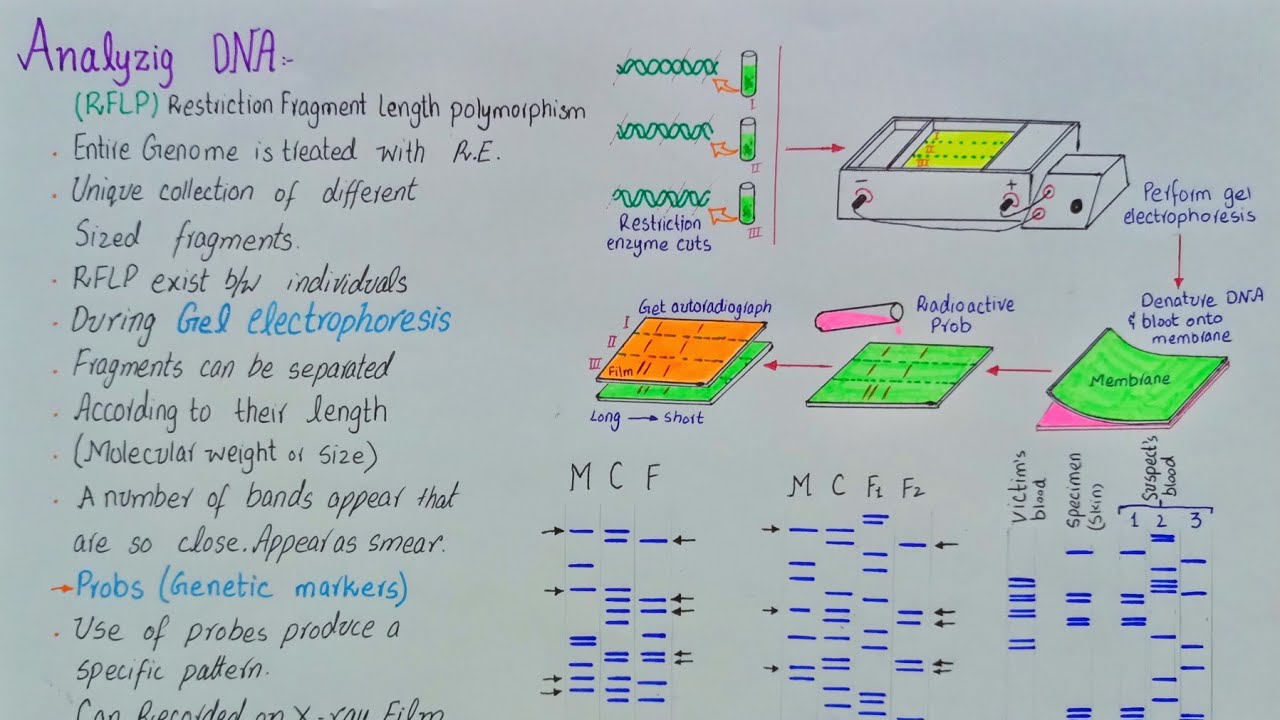 Analyzig DNA:-
(RFLP) Restriction Fragment length polymorphism
. Entire Genome is treated with R.E.
. Unique collection of different
Sized fragments.
. RFLP exist b/w individuals
. During Gel electrophoresis
. Fragments can be separated
. According to their length
. (Molecular weight or size)
. A number of bands appear that
are so close. Appear as smear.
→ Probs (Genetic markers)
. Use of probes produce a
specific pattern.
Can Recorded on X-ray Film
I
II
III
Restriction
enzyme cuts
I
II
III
- +
Perform gel
electrophoresis
Denature DNA
& bloot onto
membrane
Membrane
Radioactive
Prob
Get autoradiograph
I
II
III
Film
Long → short
M C F
M C F1 F2
Victim's
blood
Specimen
(Skin)
Suspect's
blood
1 2 3